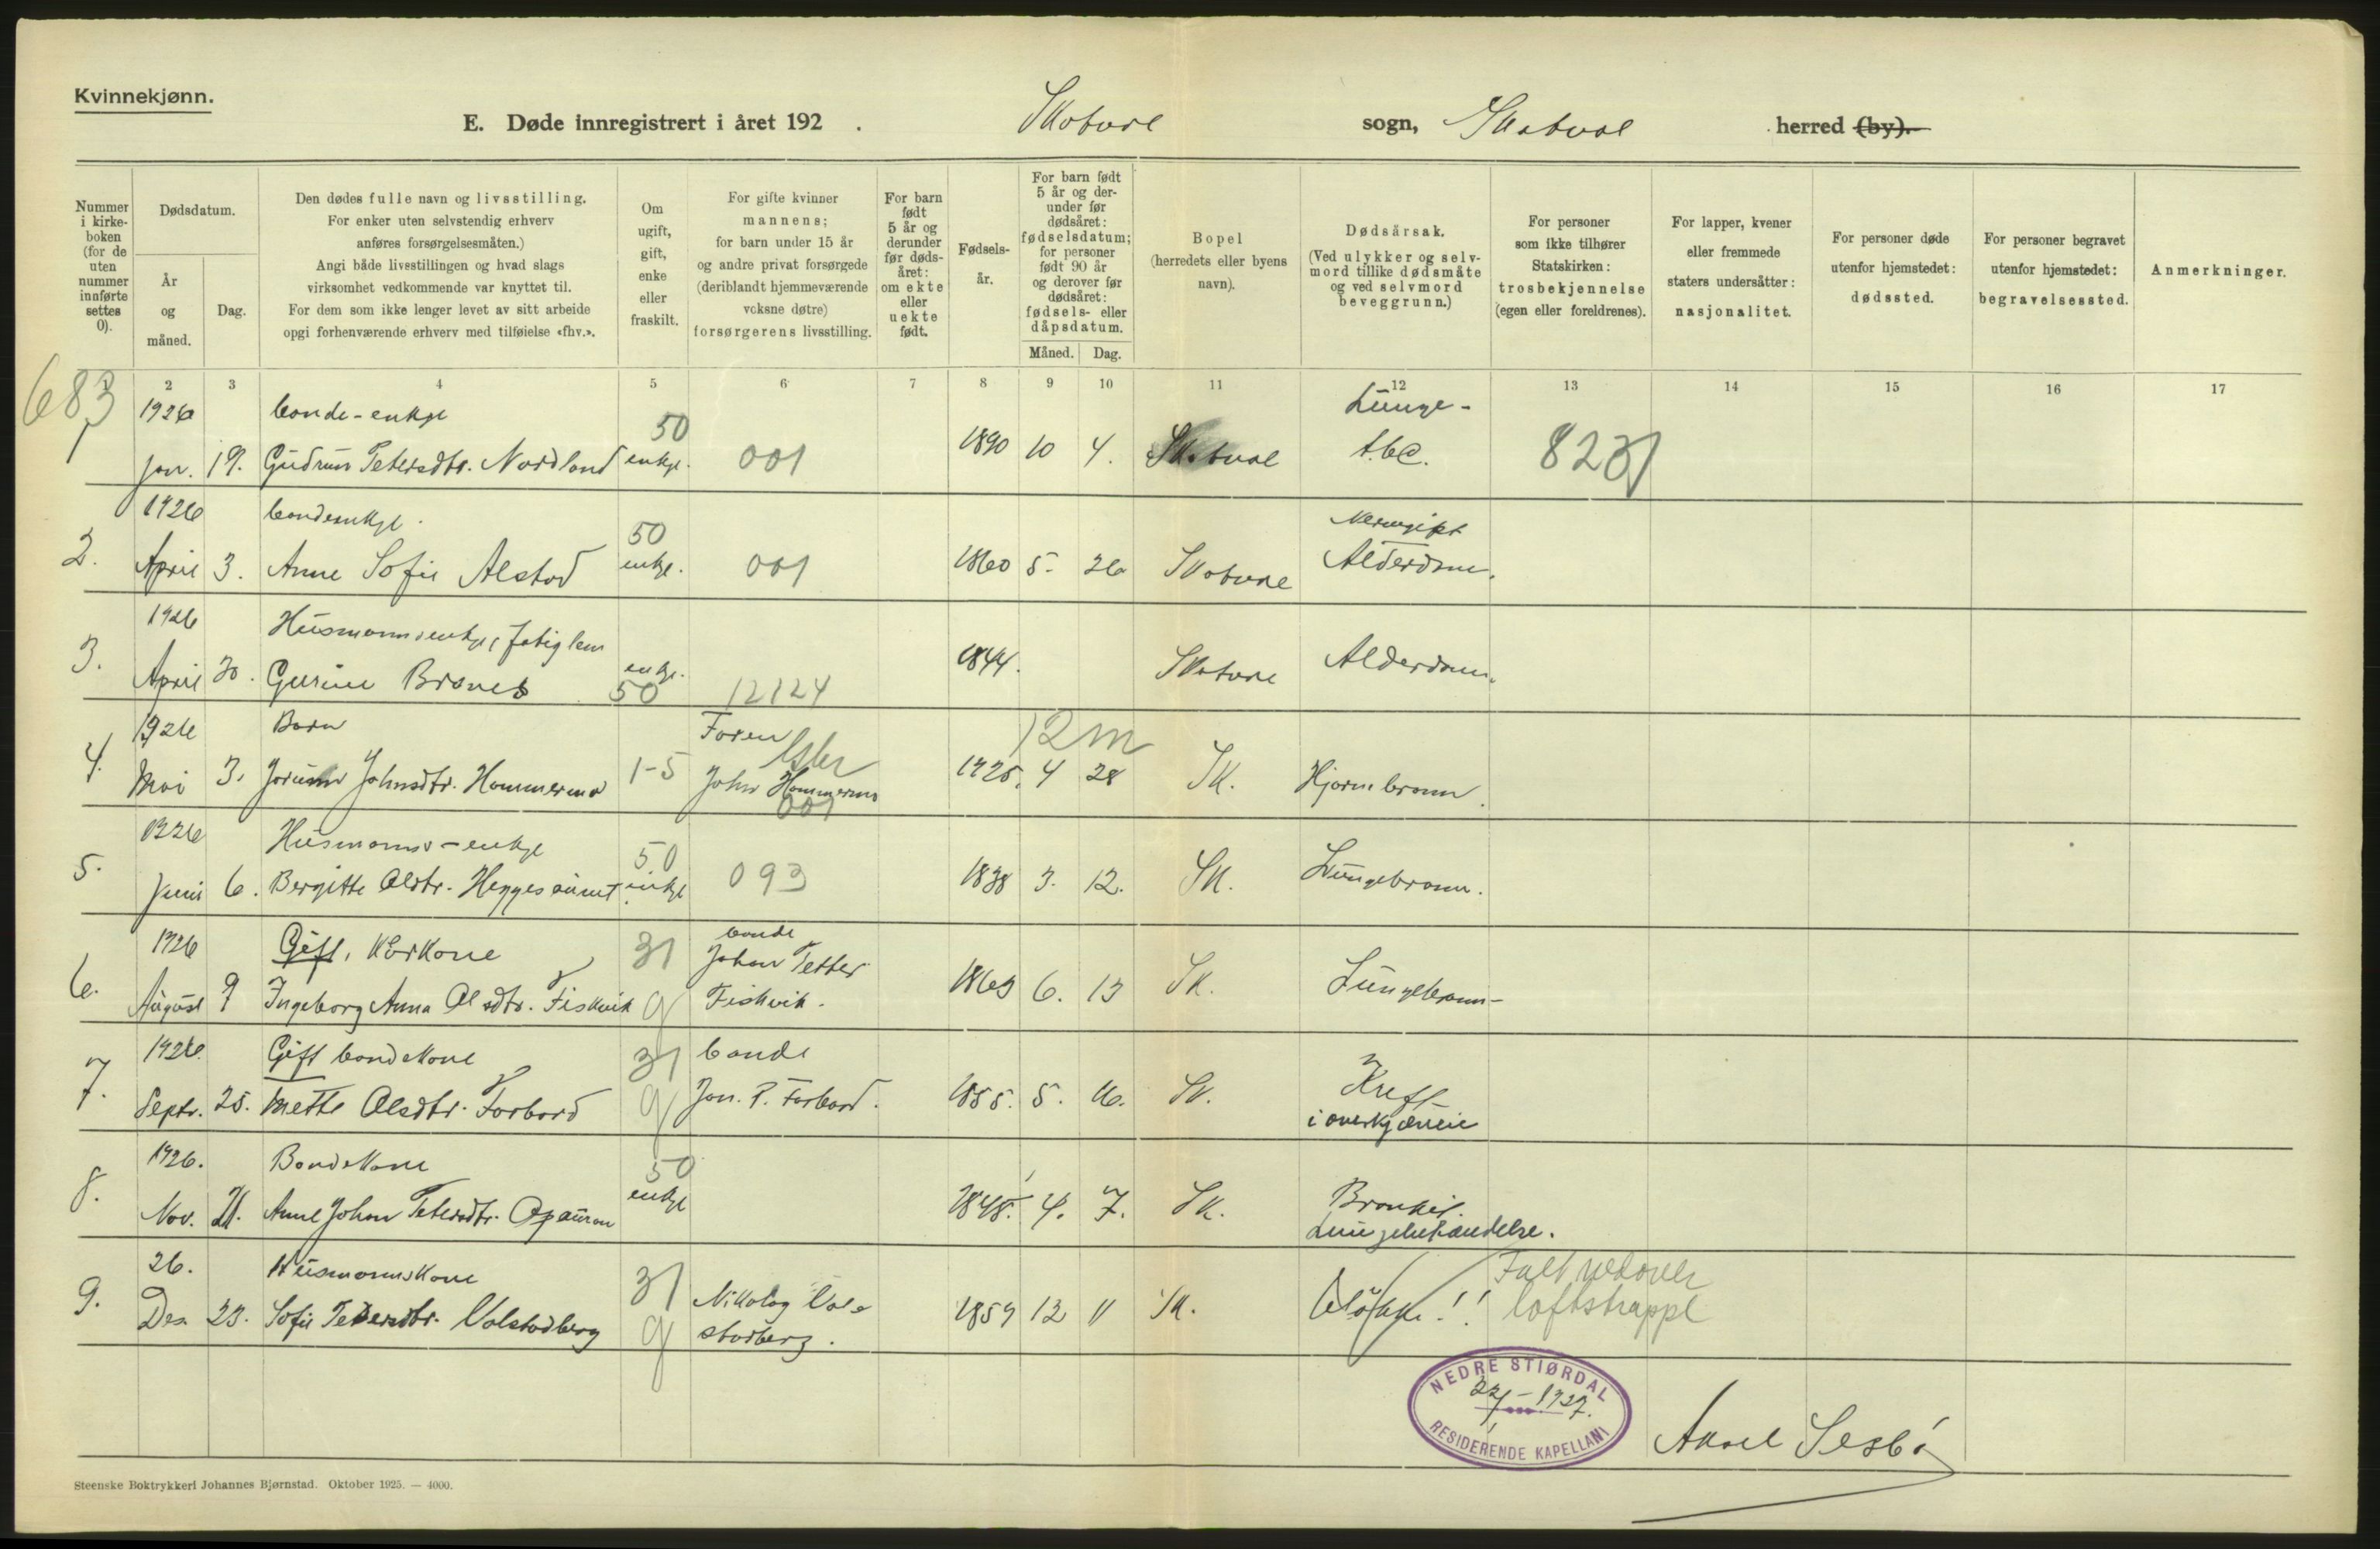 Kvinnekjønn.
E. Døde innregistrert i året 192 . Skatval sogn, Skatval herred (by).
Nummer i kirkeboken (for de uten nummer innførte settes 0).
Dødsdatum.
År og måned.
Dag.
Den dødes fulle navn og livsstilling.
For enker uten selvstendig erhverv
anføres forsørgelsesmåten.)
Angi både livsstillingen og hvad slags
virksomhet vedkommende var knyttet til.
For dem som ikke lenger levet av sitt arbeide
opgi forhenværende erhverv med tilføielse «fhv.».
Om ugift, gift, enke eller fraskilt.
For gifte kvinner
mannens;
for barn under 15 år
og andre privat forsørgede
(deriblandt hjemmeværende
voksne døtre)
forsørgerens livsstilling.
For barn født 5 år og derunder før dødsåret: om ekte eller uekte født.
Fødselsår.
For barn født 5 år og derunder før dødsåret: fødselsdatum; for personer født 90 år og derover før dødsåret: fødsels- eller dåpsdatum.
Måned. Dag.
Bopel
(herredets eller byens
navn).
Dødsårsak.
(Ved ulykker og selvmord tillike dødsmåte og ved selvmord beveggrunn.)
For personer
som ikke tilhører
Statskirken:
trosbekjennelse
(egen eller foreldrenes).
For lapper, kvener
eller fremmede
staters undersåtter:
nasjonalitet.
For personer døde
utenfor hjemstedet:
dødssted.
For personer begravet
utenfor hjemstedet:
begravelsessted.
Anmerkninger.
683
2 3 4 5 6 7 8 9 10 11 12 13 14 15 16 17
1926 bonde-enkje 50 Lunge-
1 jan. 19. Gudrun Petersdtr. Nordland enkje. 001 1890 10 4. Skatval t.b.c. 8231
1926 bondeenkje. 50
2. April 3. Anne Sofie Alstad enkje. 001 1860 5. 26 Skatval Alderdom.
1926 Husmannsenkje,
3. April 30. Gurine enkje. 50 12124 1844. Skatval Alderdom.
1926 Barn Faren 12 m
4. Mai 3. Jorunn Johnsdtr. Hammermo 1-5 John Hammermo 001 1925. 4 28 Sk. Hjernebronn.
1926 Husmanns-enkje 50
5. Juni 6. Bergitte Olsdtr. enkje 093 1838 3. 12. Sk. Lungebronn.
1926 Gift, Kårkone 31 bonde
Johan Petter
6. August 9 Ingeborg Anna Olsdtr. Fiskvik g Fiskvik. 1863 6. 13 Sk. Lungebronn-
1926. Gift bondekone 31 bonde
7. Septr. 25. Mette Olsdtr. Forbord g Jon. P. Forbord. 1855. 5. 16. Sk. Kreft
i overkjæven
1926. Bondekone 50
8. Nov. 21. Anne Johan Petersdtr. enkje 1845. 4. 7. Sk. Bronkit.
26. Husmannskone 31 Falt nedover
9. Des 23. Sofie Petersdtr. Volstadberg g Nikolay Volstadberg. 1859 12 11 Sk. Ulökke!! loftstrappe
NEDRE STJØRDAL
22/1-1927.
RESIDERENDE KAPELLANI
Steenske Boktrykkeri Johannes Bjørnstad. Oktober 1925. — 4000.